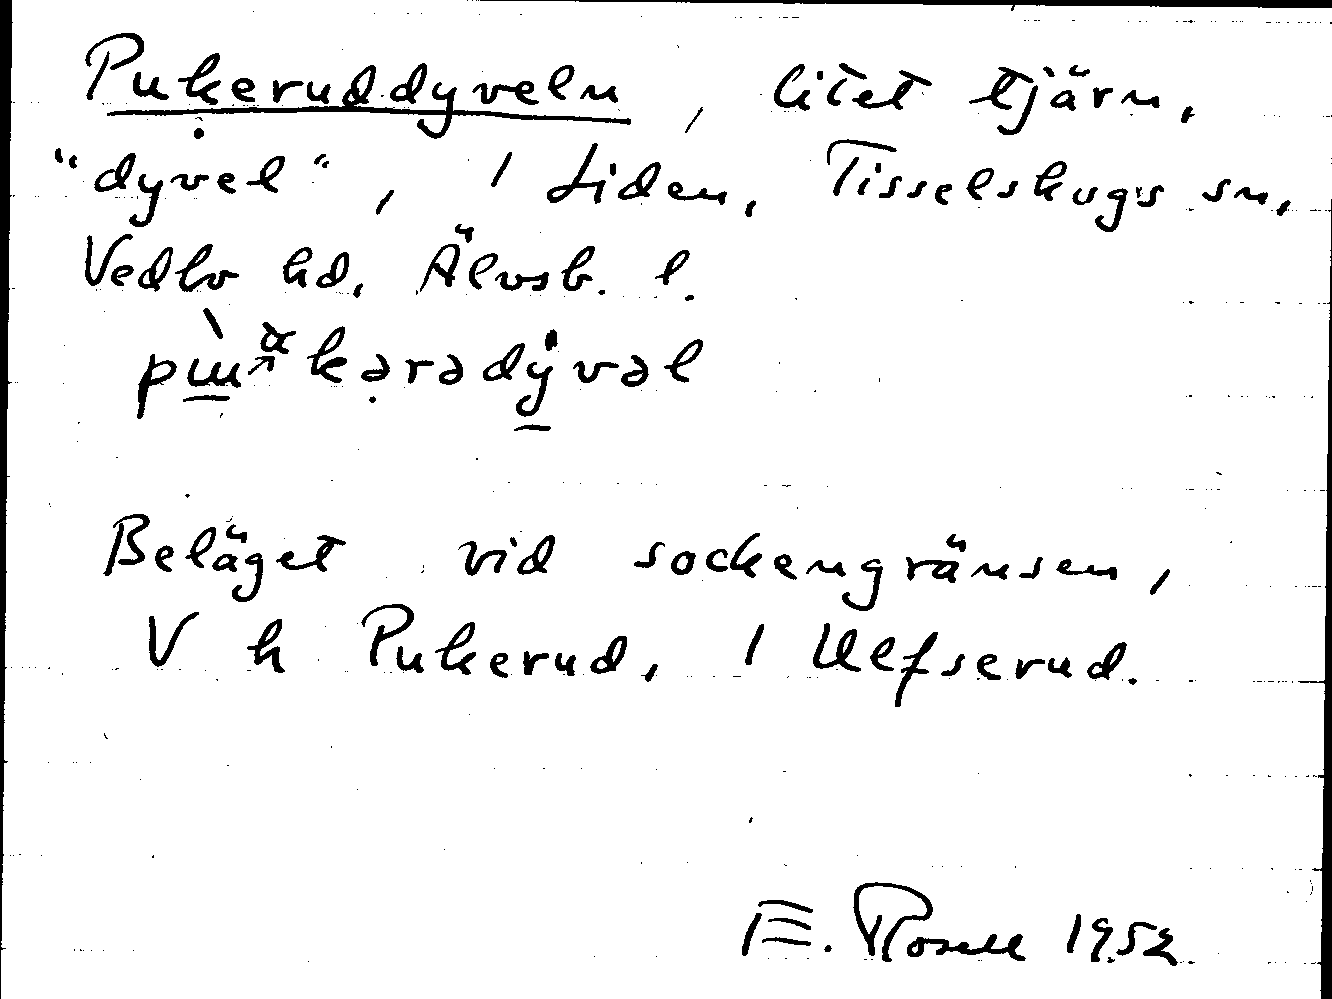 Pukeruddyveln, litet tjärn,
"dyvel", 1 Liden, Tisselskogs sn,
Vedbo hd, Älvsb. l.
Beläget vid sockengränsen,
V h Pukerud, 1 Ulfserud.
E. Rosell 1952